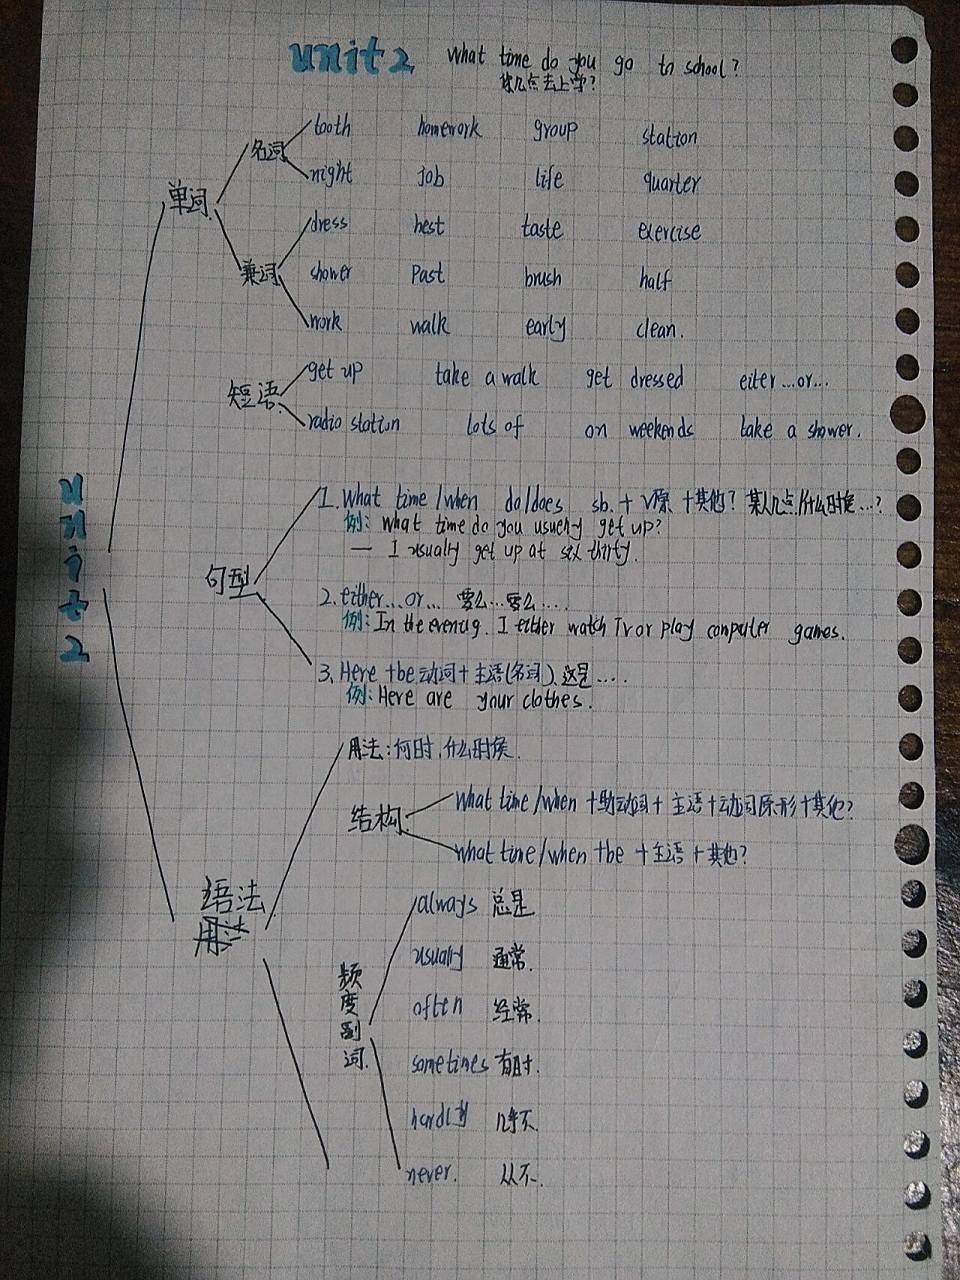 unit 2 What time do you go to school?
你几点去上学?
单词
名词
tooth homework group station
night job life quarter
兼词
dress best taste exercise
shower past brush half
work walk early clean.
短语
get up take a walk get dressed eiter...or...
radio station lots of on weekends take a shower.
unit 2
句型
1. What time/when do/does sb. + V原 + 其他? 某人几点/什么时候...?
例: What time do you usually get up?
— I usually get up at six thirty.
2. either...or... 要么...要么....
例: In the evening. I either watch TV or play computer games.
3. Here + be动词 + 主语(名词). 这是....
例: Here are your clothes.
语法
用法: 何时,什么时候.
结构
What time/when + 助动词 + 主语 + 动词原形 + 其他?
What time/when + be + 主语 + 其他?
频度副词.
always 总是
usually 通常.
often 经常.
sometimes 有时.
hardly 几乎不.
never. 从不.